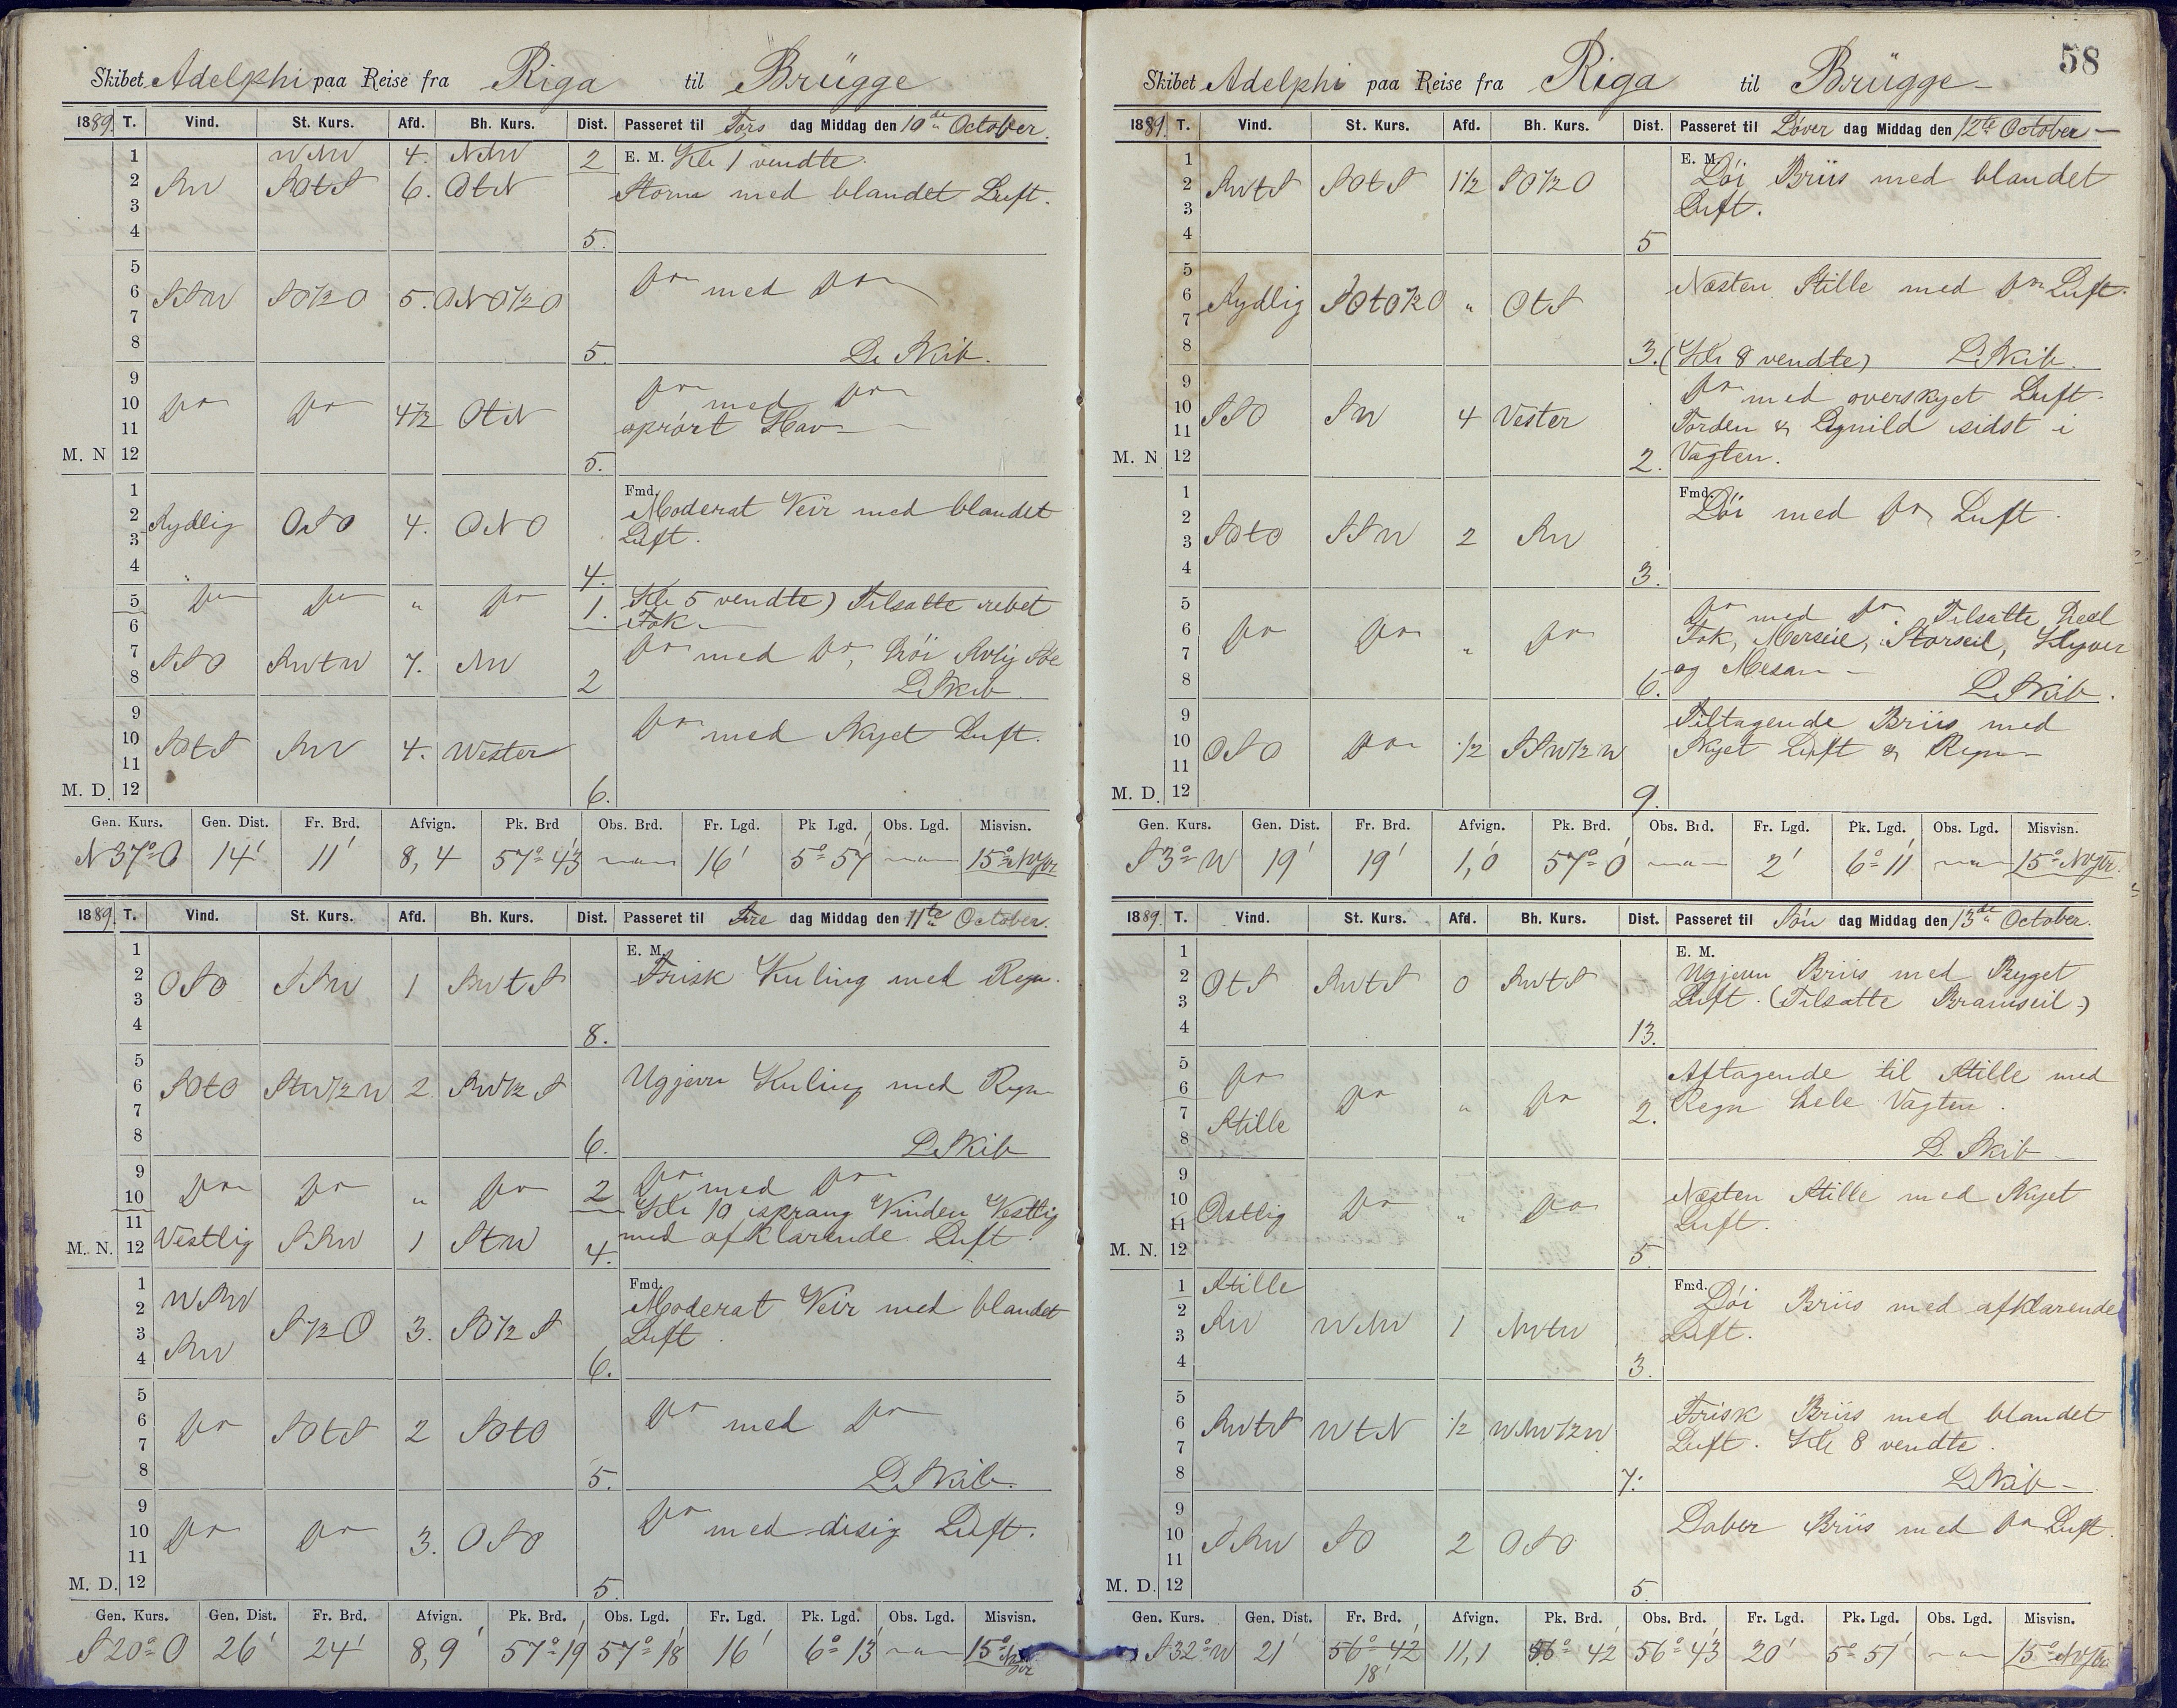 Skibet Adelphi paa Reise fra Riga til Brügge
1889. T. Vind. St. Kurs. Afd. Bh. Kurs. Dist. Passeret til Tors dag Middag den 10de October.
1 WNW 4. NNW 2 E. M. Kl 1 vendte.
2 SW SOtS 6. OtN Storm med blandet Luft.
3
4 5.
5
6 SSW SO½O 5. ONO½O Do med Do
7
8 5. L. Skib.
9
10 Do Do 4½ OtN Do med Do
11 oprört Hav
M. N 12 5.
1 Fmd.
2 Sydlig OSO 4. ONO Moderat Veir med blandet
3 Luft.
4 4.
5 Do Do " Do 1. Kl 5 vendte) Tilsatte rebet
6 Fok
7 SSO SWtW 7. NW Do med Do, höi Svlig Söe
8 2 L. Skib
9
10 SOtS SW 4. Wester Do med Skyet Luft.
11
M. D. 12 6.
Gen. Kurs. Gen. Dist. Fr. Brd. Afvign. Pk. Brd Obs. Brd. Fr. Lgd. Pk Lgd. Obs. Lgd. Misvisn.
N 37° O 14' 11' 8,4 57° 43' 16' 5° 57' 15° NVstr
1889. T. Vind. St. Kurs. Afd. Bh. Kurs. Dist. Passeret til Fre dag Middag den 11te October.
1 E. M.
2 OSO SSW 1 SWtS Frisk Kuling med Regn.
3
4 8.
5
6 SOtO StW½W 2 SW½S Ugjevn Kuling med Regn
7
8 6. L. Skib
9 Do Do " Do 2 Do med Do
10 Kl 10 sprang Vinden Vestlig
11 Vestlig SSW 1 StW med afklarende Luft.
M. N. 12 4.
1 Fmd.
2 WSW S½O 3. SO½S Moderat Veir med blandet
3 SW Luft.
4 6.
5
6 Do SOtS 2 SOtO Do med Do
7
8 5. L. Skib.
9
10 Do Do 3. OSO Do med disig Luft.
11
M. D. 12 5.
Gen. Kurs. Gen. Dist. Fr. Brd. Afvign. Pk. Brd. Obs. Lgd. Fr. Lgd. Pk. Lgd. Obs. Lgd. Misvisn.
S 20° O 26' 24' 8,9' 57° 19' 57° 18' 16' 6° 13' 15° NVstr
58
Skibet Adelphi paa Reise fra Riga til Brügge
1889. T. Vind. St. Kurs. Afd. Bh. Kurs. Dist. Passeret til Löver dag Middag den 12te October
1 E. M.
2 SWtS SOtS 1½ SO½O Löi Briis med blandet
3 Luft.
4 5
5
6 Sydlig SOtO½O " OtS Næsten Stille med Do Luft.
7
8 3. (Kl 8 vendte) L. Skib.
9 Do med overskyet Luft.
10 SSO SW 4 Vester Torden & Lynild sidst i
11 Vagten.
M. N 12 2.
1 Fmd.
2 SOtO SSW 2 SW Löi med Do Luft.
3
4 3.
5 Do med Do. Tilsatte heel
6 Do Do " Do Fok, Merseil, Storseil, Klyver
7 og Mesan
8 6. L. Skib.
9 Tiltagende Briis med
10 OSO Do ½ SSW½W Skyet Luft & Regn
11
M. D. 12 9.
Gen. Kurs. Gen. Dist. Fr. Brd. Afvign. Pk. Brd. Obs. Brd. Fr. Lgd. Pk. Lgd. Obs. Lgd. Misvisn.
S 3° W 19' 19' 1,0 57° 0' 2' 6° 11' 15° NVstr.
1889. T. Vind. St. Kurs. Afd. Bh. Kurs. Dist. Passeret til Sön dag Middag den 13de October.
1 E. M.
2 OtS SWtS 0 SWtS Ugjevn Briis med Byget
3 Luft. (Tilsatte Bramseil)
4 13.
5
6 Do Do " Do Aftagende til Stille med
7 Stille 2. Regn hele Vagten.
8 L. Skib
9
10 Ostlig Do " Do Næsten Stille med Skyet
11 Luft.
M. N. 12 5.
1 Stille Fmd.
2 SW WNW 1 NWtW Löi Briis med afklarende
3 Luft.
4 3.
5
6 SWtS WtN ½ WNW½W Frisk Briis med blandet
7 Luft. Kl 8 vendte.
8 7. L. Skib
9
10 SSW SO 2 OSO Laber Briis med Do Luft.
11
M. D. 12 5.
Gen. Kurs. Gen. Dist. Fr. Brd. Afvign. Pk. Brd. Obs. Brd. Fr. Lgd. Pk. Lgd. Obs. Lgd. Misvisn.
S 32° W 21' 56° 42' 11,1 56° 42' 56° 43' 20' 5° 51' 15° NVstr.
18'